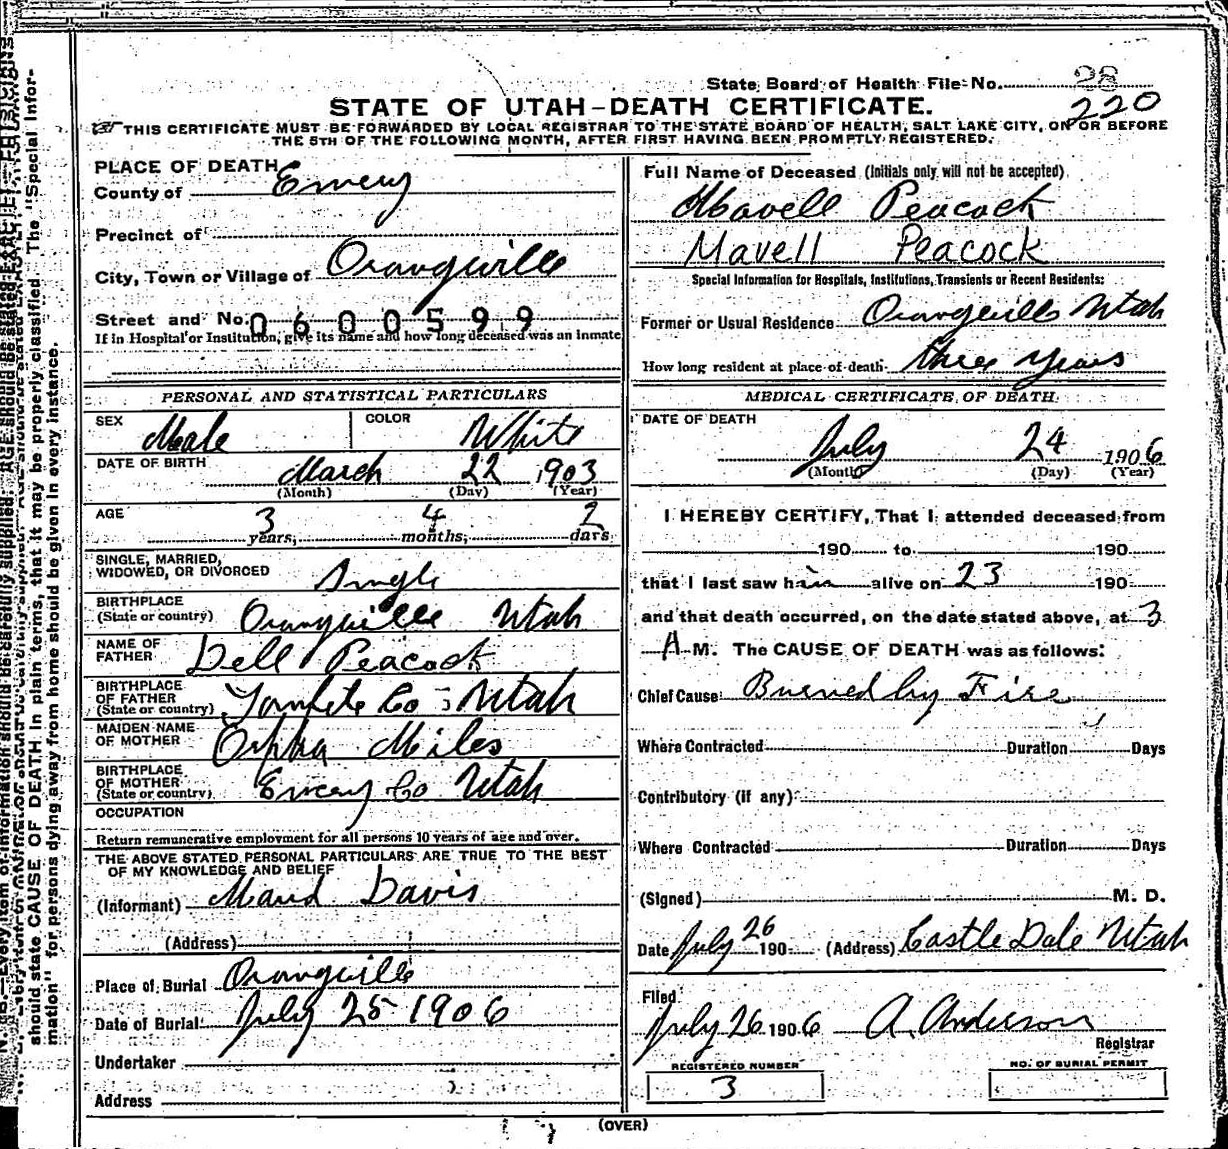 State Board of Health File No. 28
220
STATE OF UTAH-DEATH CERTIFICATE.
THIS CERTIFICATE MUST BE FORWARDED BY LOCAL REGISTRAR TO THE STATE BOARD OF HEALTH, SALT LAKE CITY, ON OR BEFORE
THE 5TH OF THE FOLLOWING MONTH, AFTER FIRST HAVING BEEN PROMPTLY REGISTERED.
PLACE OF DEATH
County of Emery
Precinct of
City, Town or Village of Orangeville
Street and No. 0600599
If in Hospital or Institution, give its name and how long deceased was an inmate
Full Name of Deceased (Initials only will not be accepted)
Mavell Peacock
Mavell Peacock
Special Information for Hospitals, Institutions, Transients or Recent Residents:
Former or Usual Residence Orangeville Utah
How long resident at place of death three years
PERSONAL AND STATISTICAL PARTICULARS
SEX Male COLOR White
DATE OF BIRTH March 22 1903
(Month) (Day) (Year)
AGE 3 years, 4 months, 2 days
SINGLE, MARRIED,
WIDOWED, OR DIVORCED Single
BIRTHPLACE
(State or country) Orangeville Utah
NAME OF
FATHER Dell Peacock
BIRTHPLACE
OF FATHER
(State or country) Sanpete Co - Utah
MAIDEN NAME
OF MOTHER Orpha Miles
BIRTHPLACE
OF MOTHER
(State or country) Emery Co Utah
OCCUPATION
Return remunerative employment for all persons 10 years of age and over.
THE ABOVE STATED PERSONAL PARTICULARS ARE TRUE TO THE BEST
OF MY KNOWLEDGE AND BELIEF
(Informant) Maud Davis
(Address)
Place of Burial Orangeville
Date of Burial July 25 1906
Undertaker
Address
MEDICAL CERTIFICATE OF DEATH
DATE OF DEATH
July 24 1906
(Month) (Day) (Year)
I HEREBY CERTIFY, That I attended deceased from
190 to 190
that I last saw him alive on 23 190
and that death occurred, on the date stated above, at 3
A M. The CAUSE OF DEATH was as follows:
Chief Cause Burned by Fire
Where Contracted Duration Days
Contributory (if any)
Where Contracted Duration Days
(Signed) M. D.
Date July 26 190 (Address) Castle Dale Utah
Filed
July 26 1906 A. Anderson
Registrar
REGISTERED NUMBER
3
NO. OF BURIAL PERMIT
(OVER)
should state CAUSE OF DEATH in plain terms, that it may be properly classified. The "Special Infor-
mation" for persons dying away from home should be given in every instance.